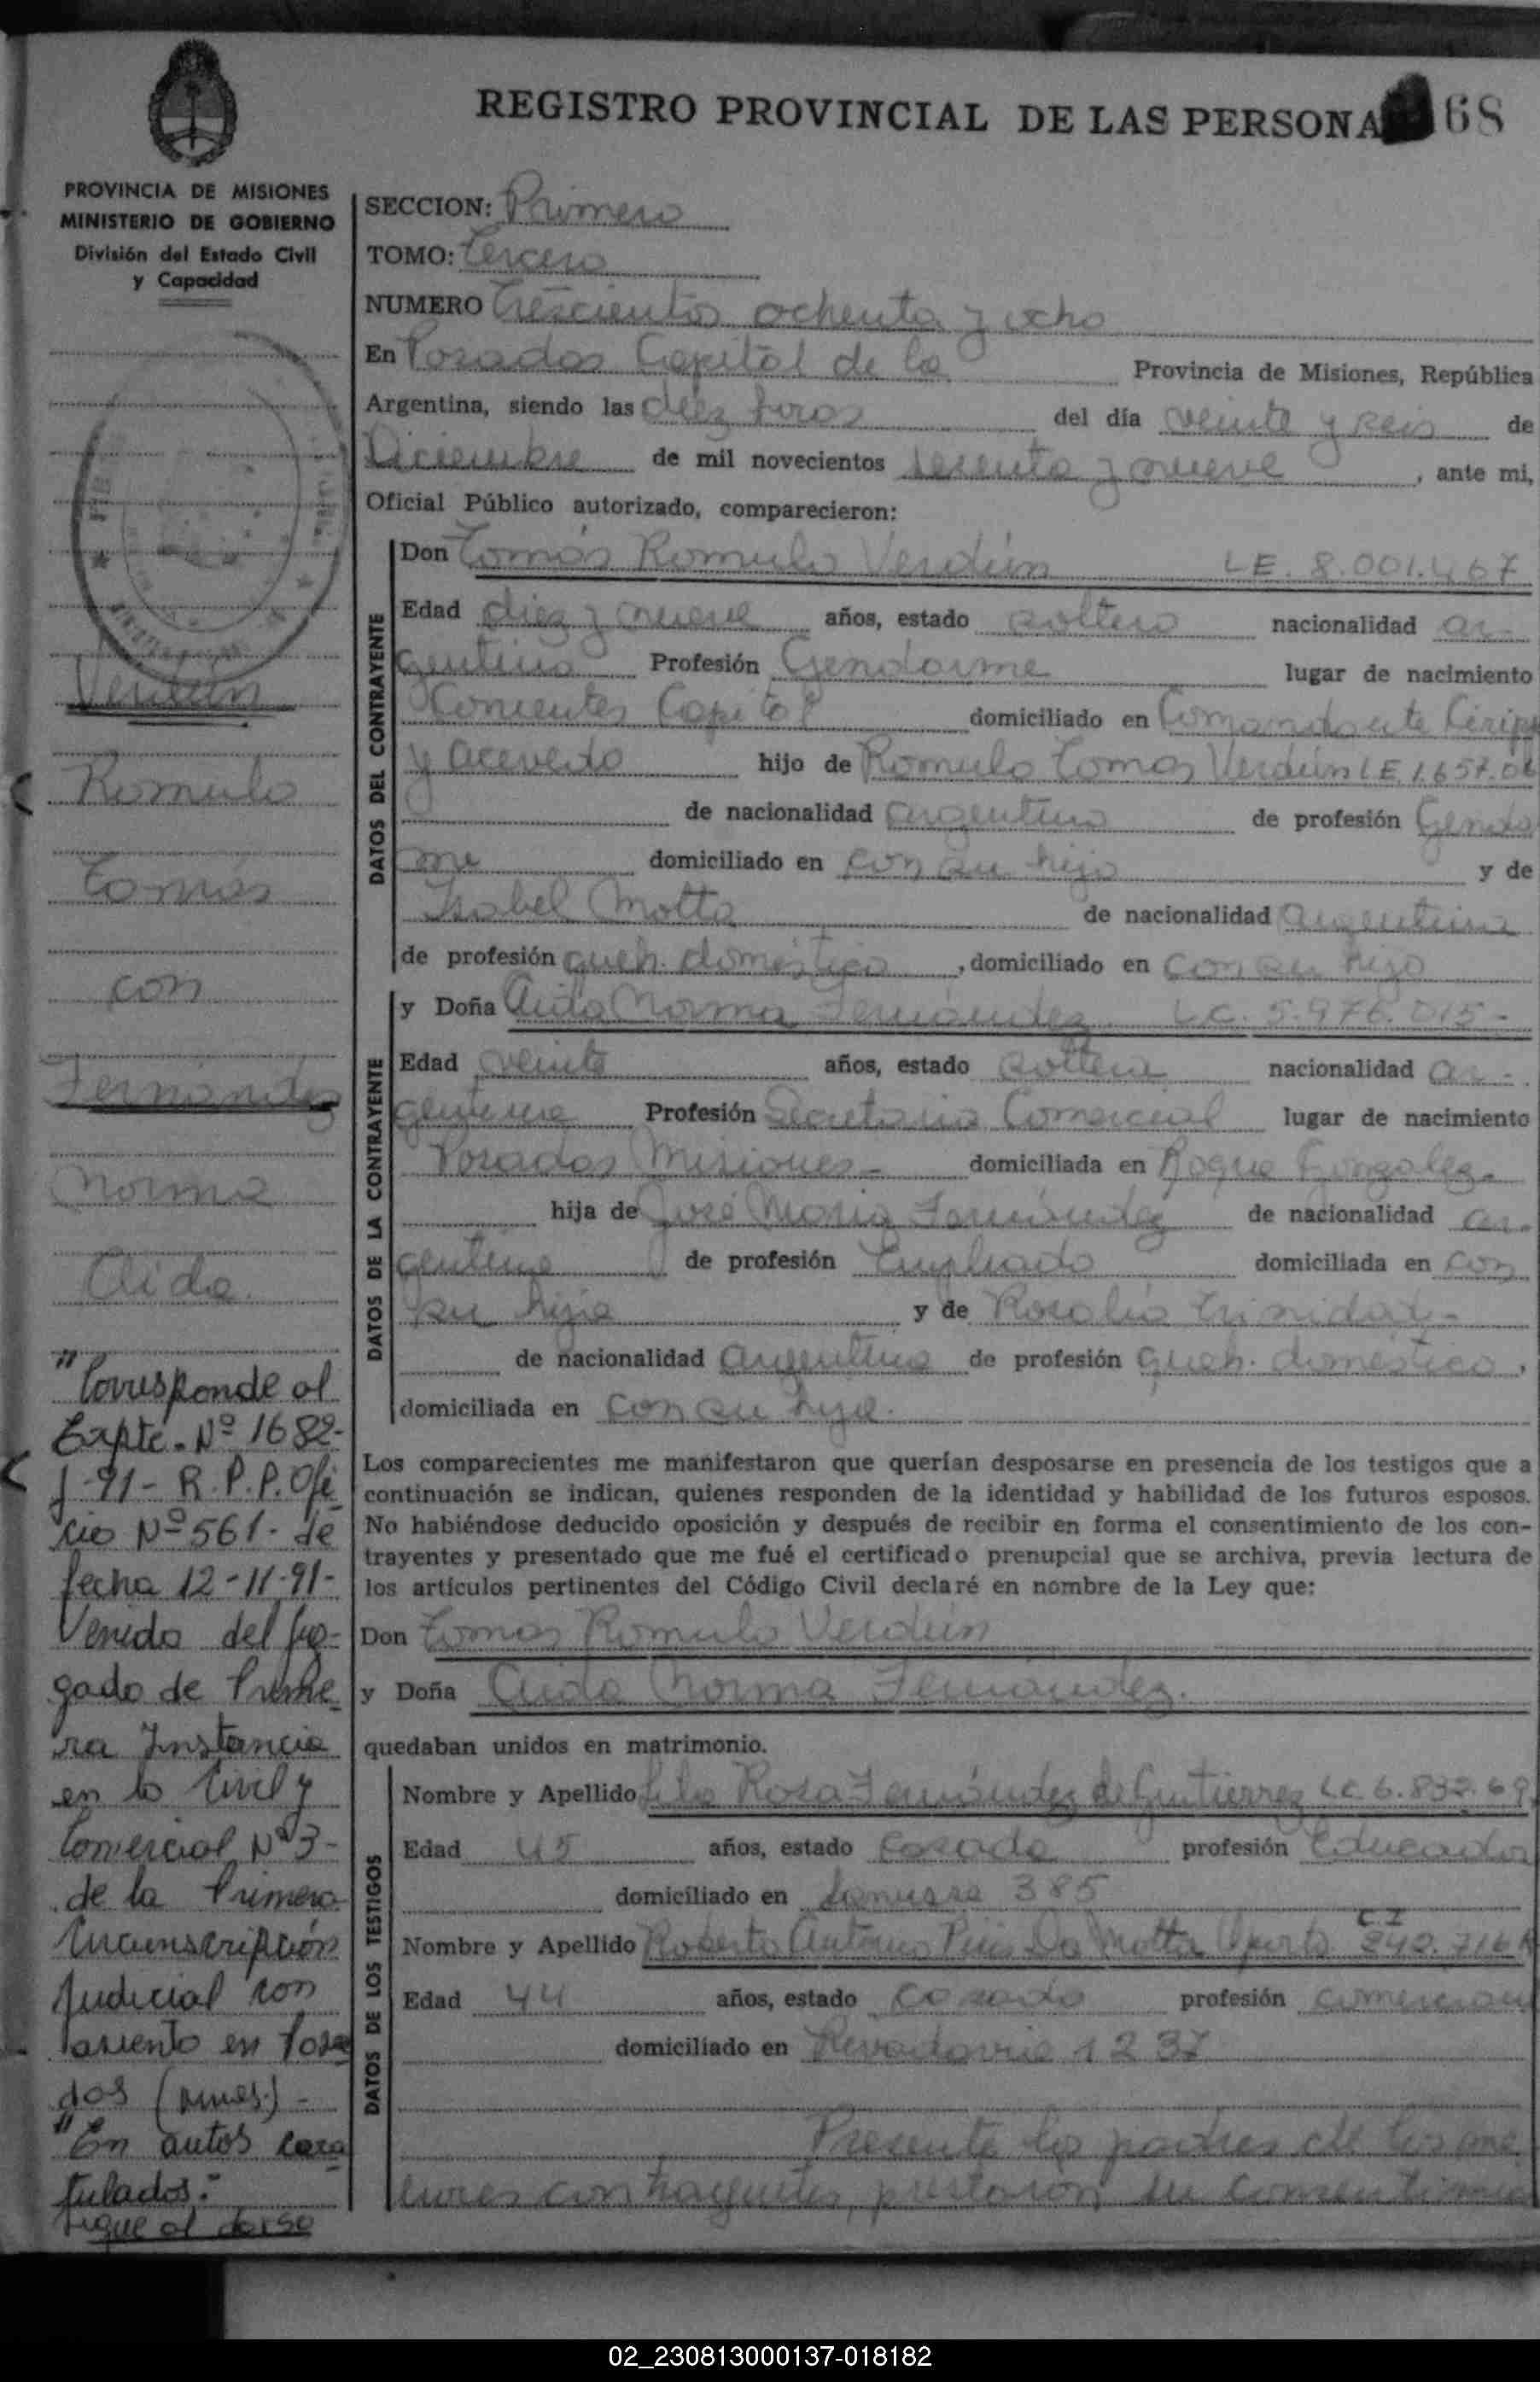 REGISTRO PROVINCIAL DE LAS PERSONA 68
PROVINCIA DE MISIONES
MINISTERIO DE GOBIERNO
División del Estado Civil
y Capacidad
Verdún
Romulo
Tomás
con
Fernández
Norma
Aida
"Corresponde al
Expte. Nº 1682-
J-91- R.P.P. Ofi
cio Nº 561- de
fecha 12-11-91-
Venido del Juz-
gado de Prime
ra Instancia
en lo Civil y
Comercial Nº 3-
de la Primera
Circunscripción
Judicial con
asiento en Posa
das (Mnes.)-
"En autos cara
tulados:
sigue al dorso
SECCION: Primera
TOMO: Tercero
NUMERO Trescientos ochenta y ocho
En Posadas Capital de la Provincia de Misiones, República
Argentina, siendo las diez horas del día veinte y seis de
Diciembre de mil novecientos sesenta y nueve, ante mi,
Oficial Público autorizado, comparecieron:
DATOS DEL CONTRAYENTE
Don Tomás Romulo Verdún LE. 8.001.467
Edad diez y nueve años, estado soltero nacionalidad ar-
gentina Profesión Gendarme lugar de nacimiento
Corrientes Capital domiciliado en Comandante
y Acevedo hijo de Romulo Tomas Verdún LE 1.657.06
de nacionalidad argentino de profesión Genda
me domiciliado en con su hijo y de
Isabel Motta de nacionalidad argentina
de profesión queh. doméstico, domiciliado en con su hijo
DATOS DE LA CONTRAYENTE
y Doña Aida Norma Fernández L.C. 5.976.015-
Edad veinte años, estado soltera nacionalidad ar-
gentina Profesión Secretaria Comercial lugar de nacimiento
Posadas Misiones- domiciliada en Roque Gonzalez-
hija de José María Fernández de nacionalidad ar-
gentina de profesión Empleado domiciliada en con
su hija y de Rosalía Trinidad-
de nacionalidad argentina de profesión queh. doméstico,
domiciliada en con su hija.
Los comparecientes me manifestaron que querían desposarse en presencia de los testigos que a
continuación se indican, quienes responden de la identidad y habilidad de los futuros esposos.
No habiéndose deducido oposición y después de recibir en forma el consentimiento de los con-
trayentes y presentado que me fué el certificado prenupcial que se archiva, previa lectura de
los artículos pertinentes del Código Civil declaré en nombre de la Ley que:
Don Tomas Romulo Verdún
y Doña Aida Norma Fernández.
quedaban unidos en matrimonio.
DATOS DE LOS TESTIGOS
Nombre y Apellido Rosa Fernández de Gutierrez LC 6.832.69
Edad 45 años, estado casada profesión Educador
domiciliado en 385
Nombre y Apellido Roberto Antonio Da Motta C.I 242.716
Edad 44 años, estado casado profesión comercian
domiciliado en Rivadavia 1237
Presente los padres de los me
nores contrayentes, prestaron su consentimie
02_230813000137-018182